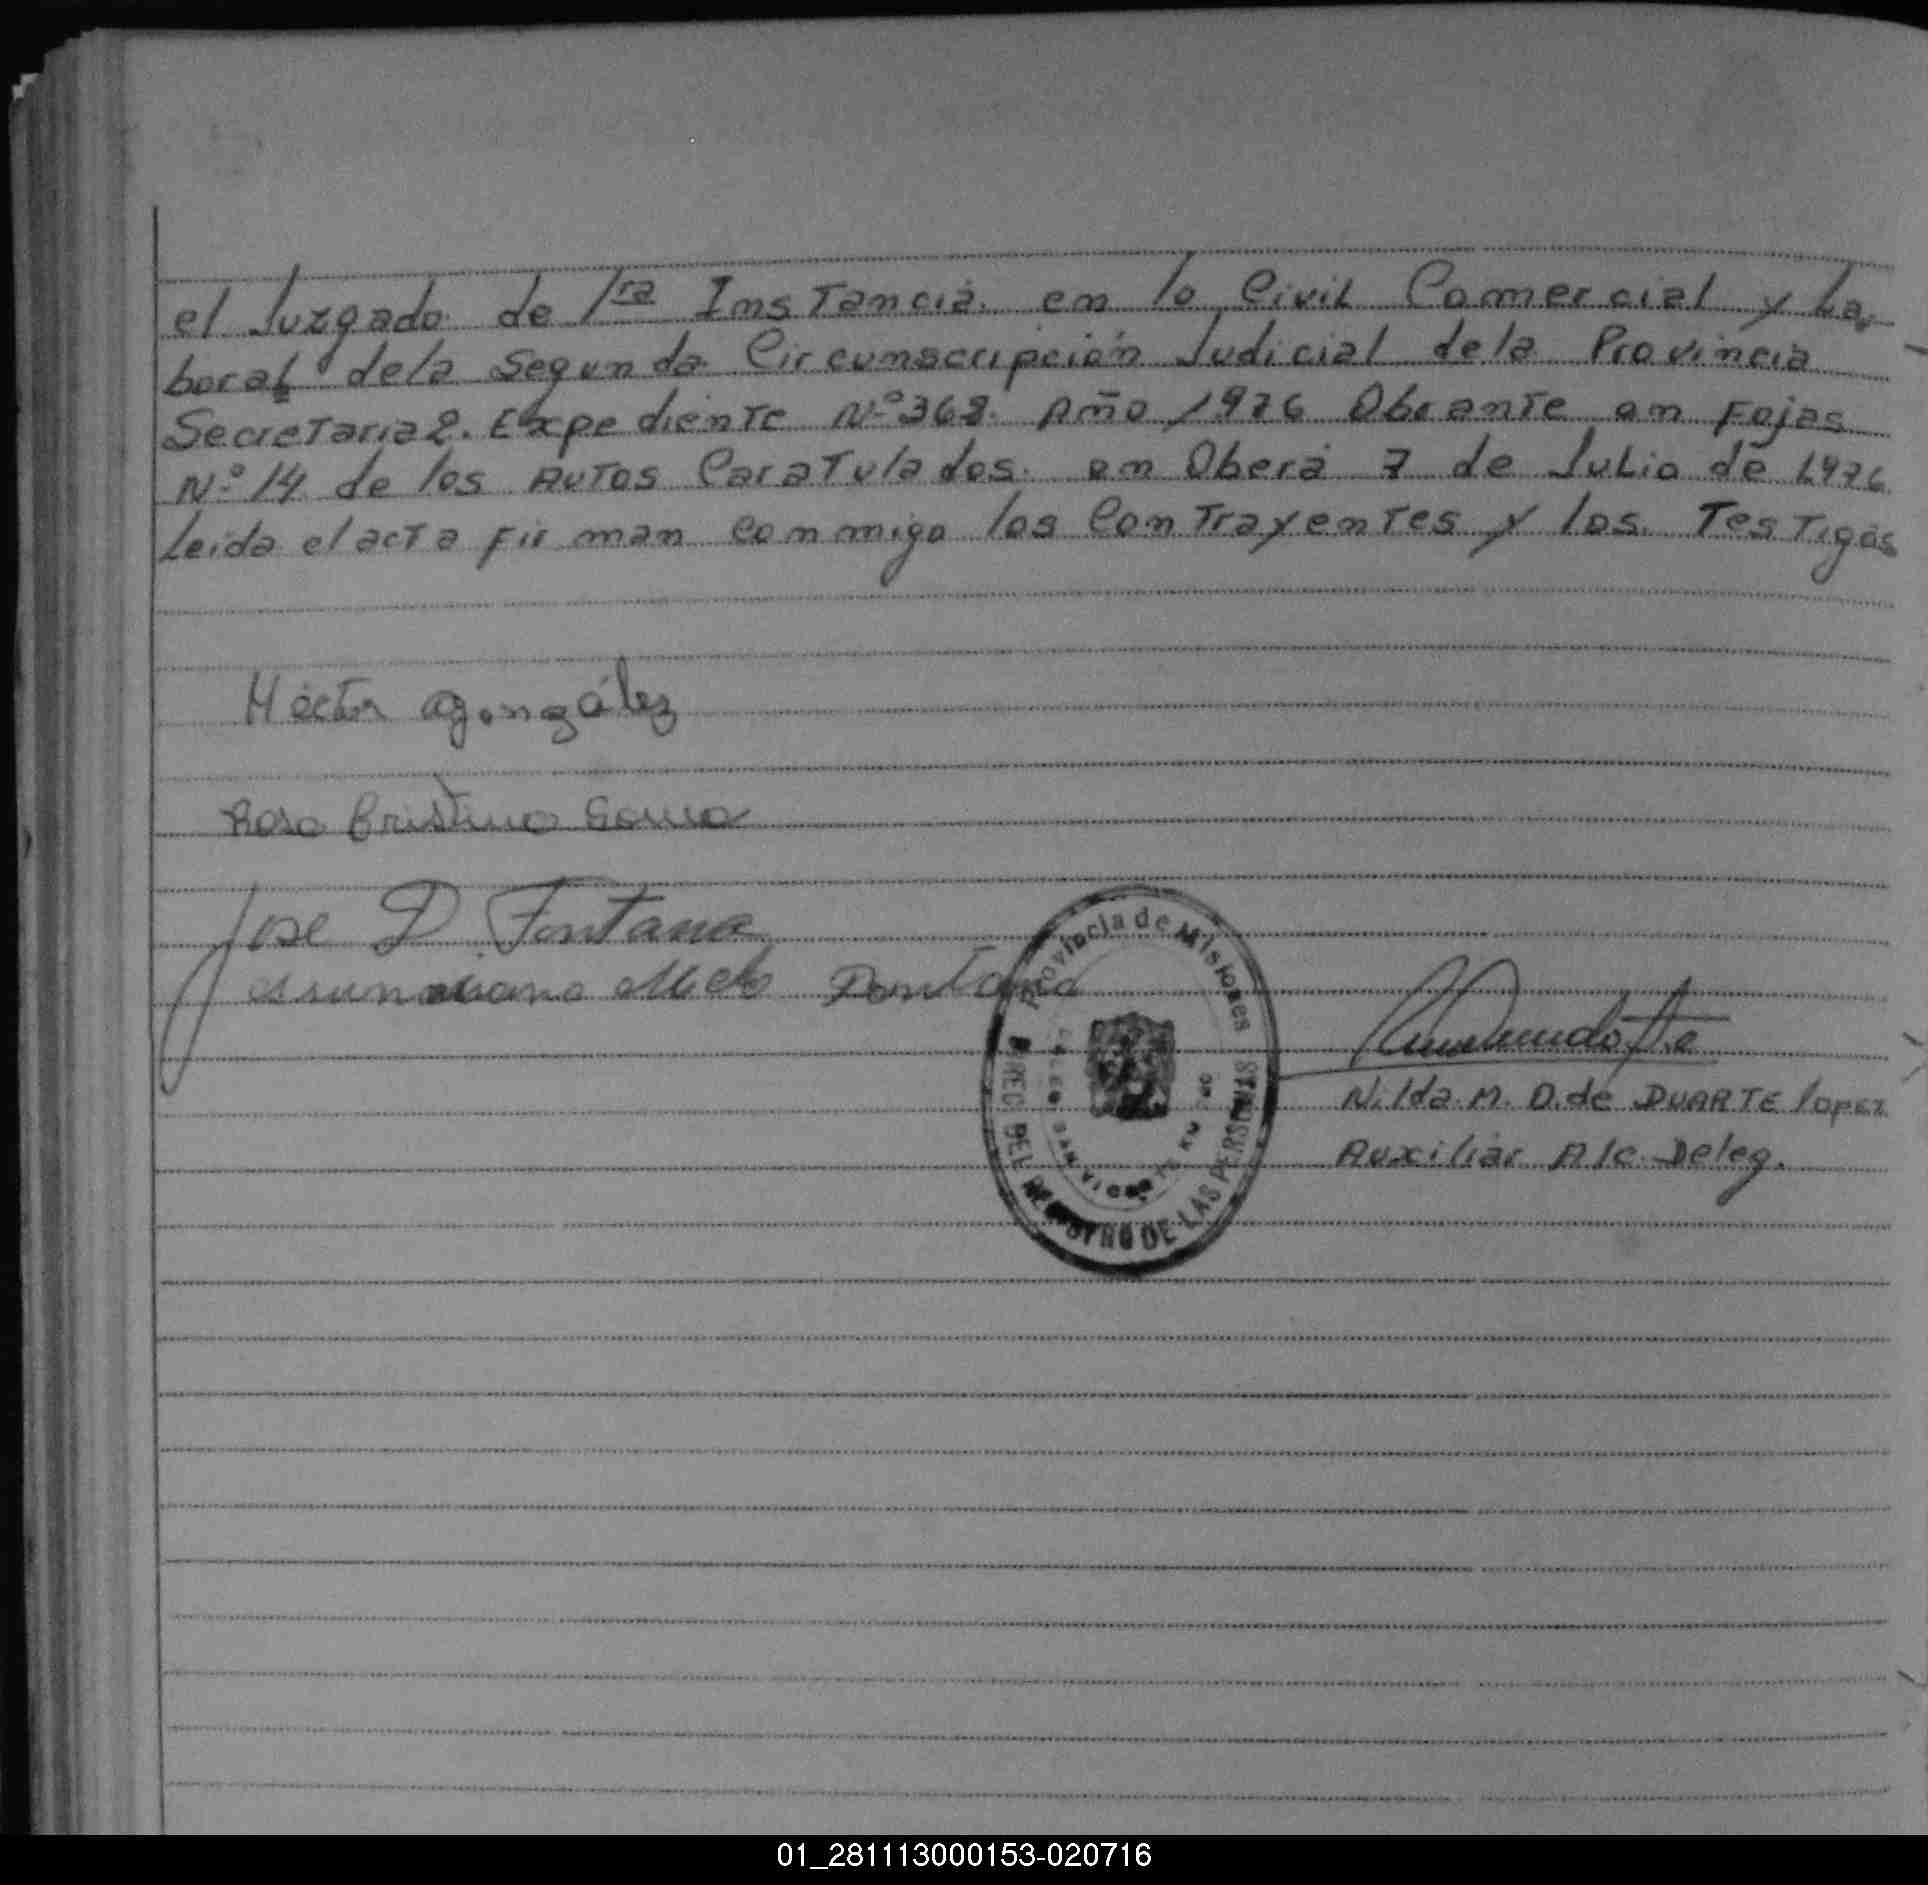 el Juzgado de 1ra Instancia en lo Civil Comercial y La-
boral dela Segunda Circunscripción Judicial dela Provincia
Secretaria 2. Expediente Nº 368. Año 1976 Obrante en Fojas
Nº 14 de los Autos Caratulados. en Oberá 7 de Julio de 1976
Leida el acta firman conmigo los Contrayentes y los Testigos
Héctor González
Rosa Cristina
José D Fontana
Melo Fontana
Nilda M. D. de DUARTE lopez
Auxiliar A/c. Deleg.
Provincia de Misiones
DEL REGISTRO DE LAS PERSONAS
SAN VICENTE KM
01_281113000153-020716